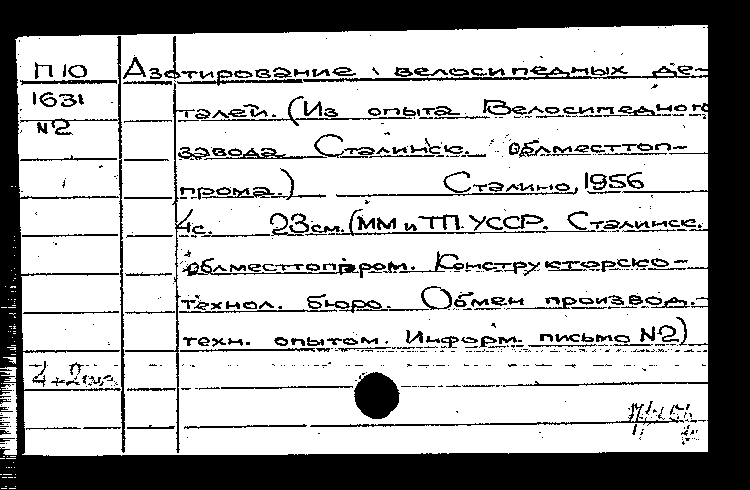 П10 Азотирование велосипедных де-
1631 талей. (Из опыта Велосипедного
N2
завода Сталинск. облместтоп-
прома.) Сталино, 1956
4с. 23см. (ММ и ТП УССР. Сталинск.
облместтоппром. Конструкторско-
технол. бюро. Обмен производ.-
техн. опытом. Информ. письмо N2)